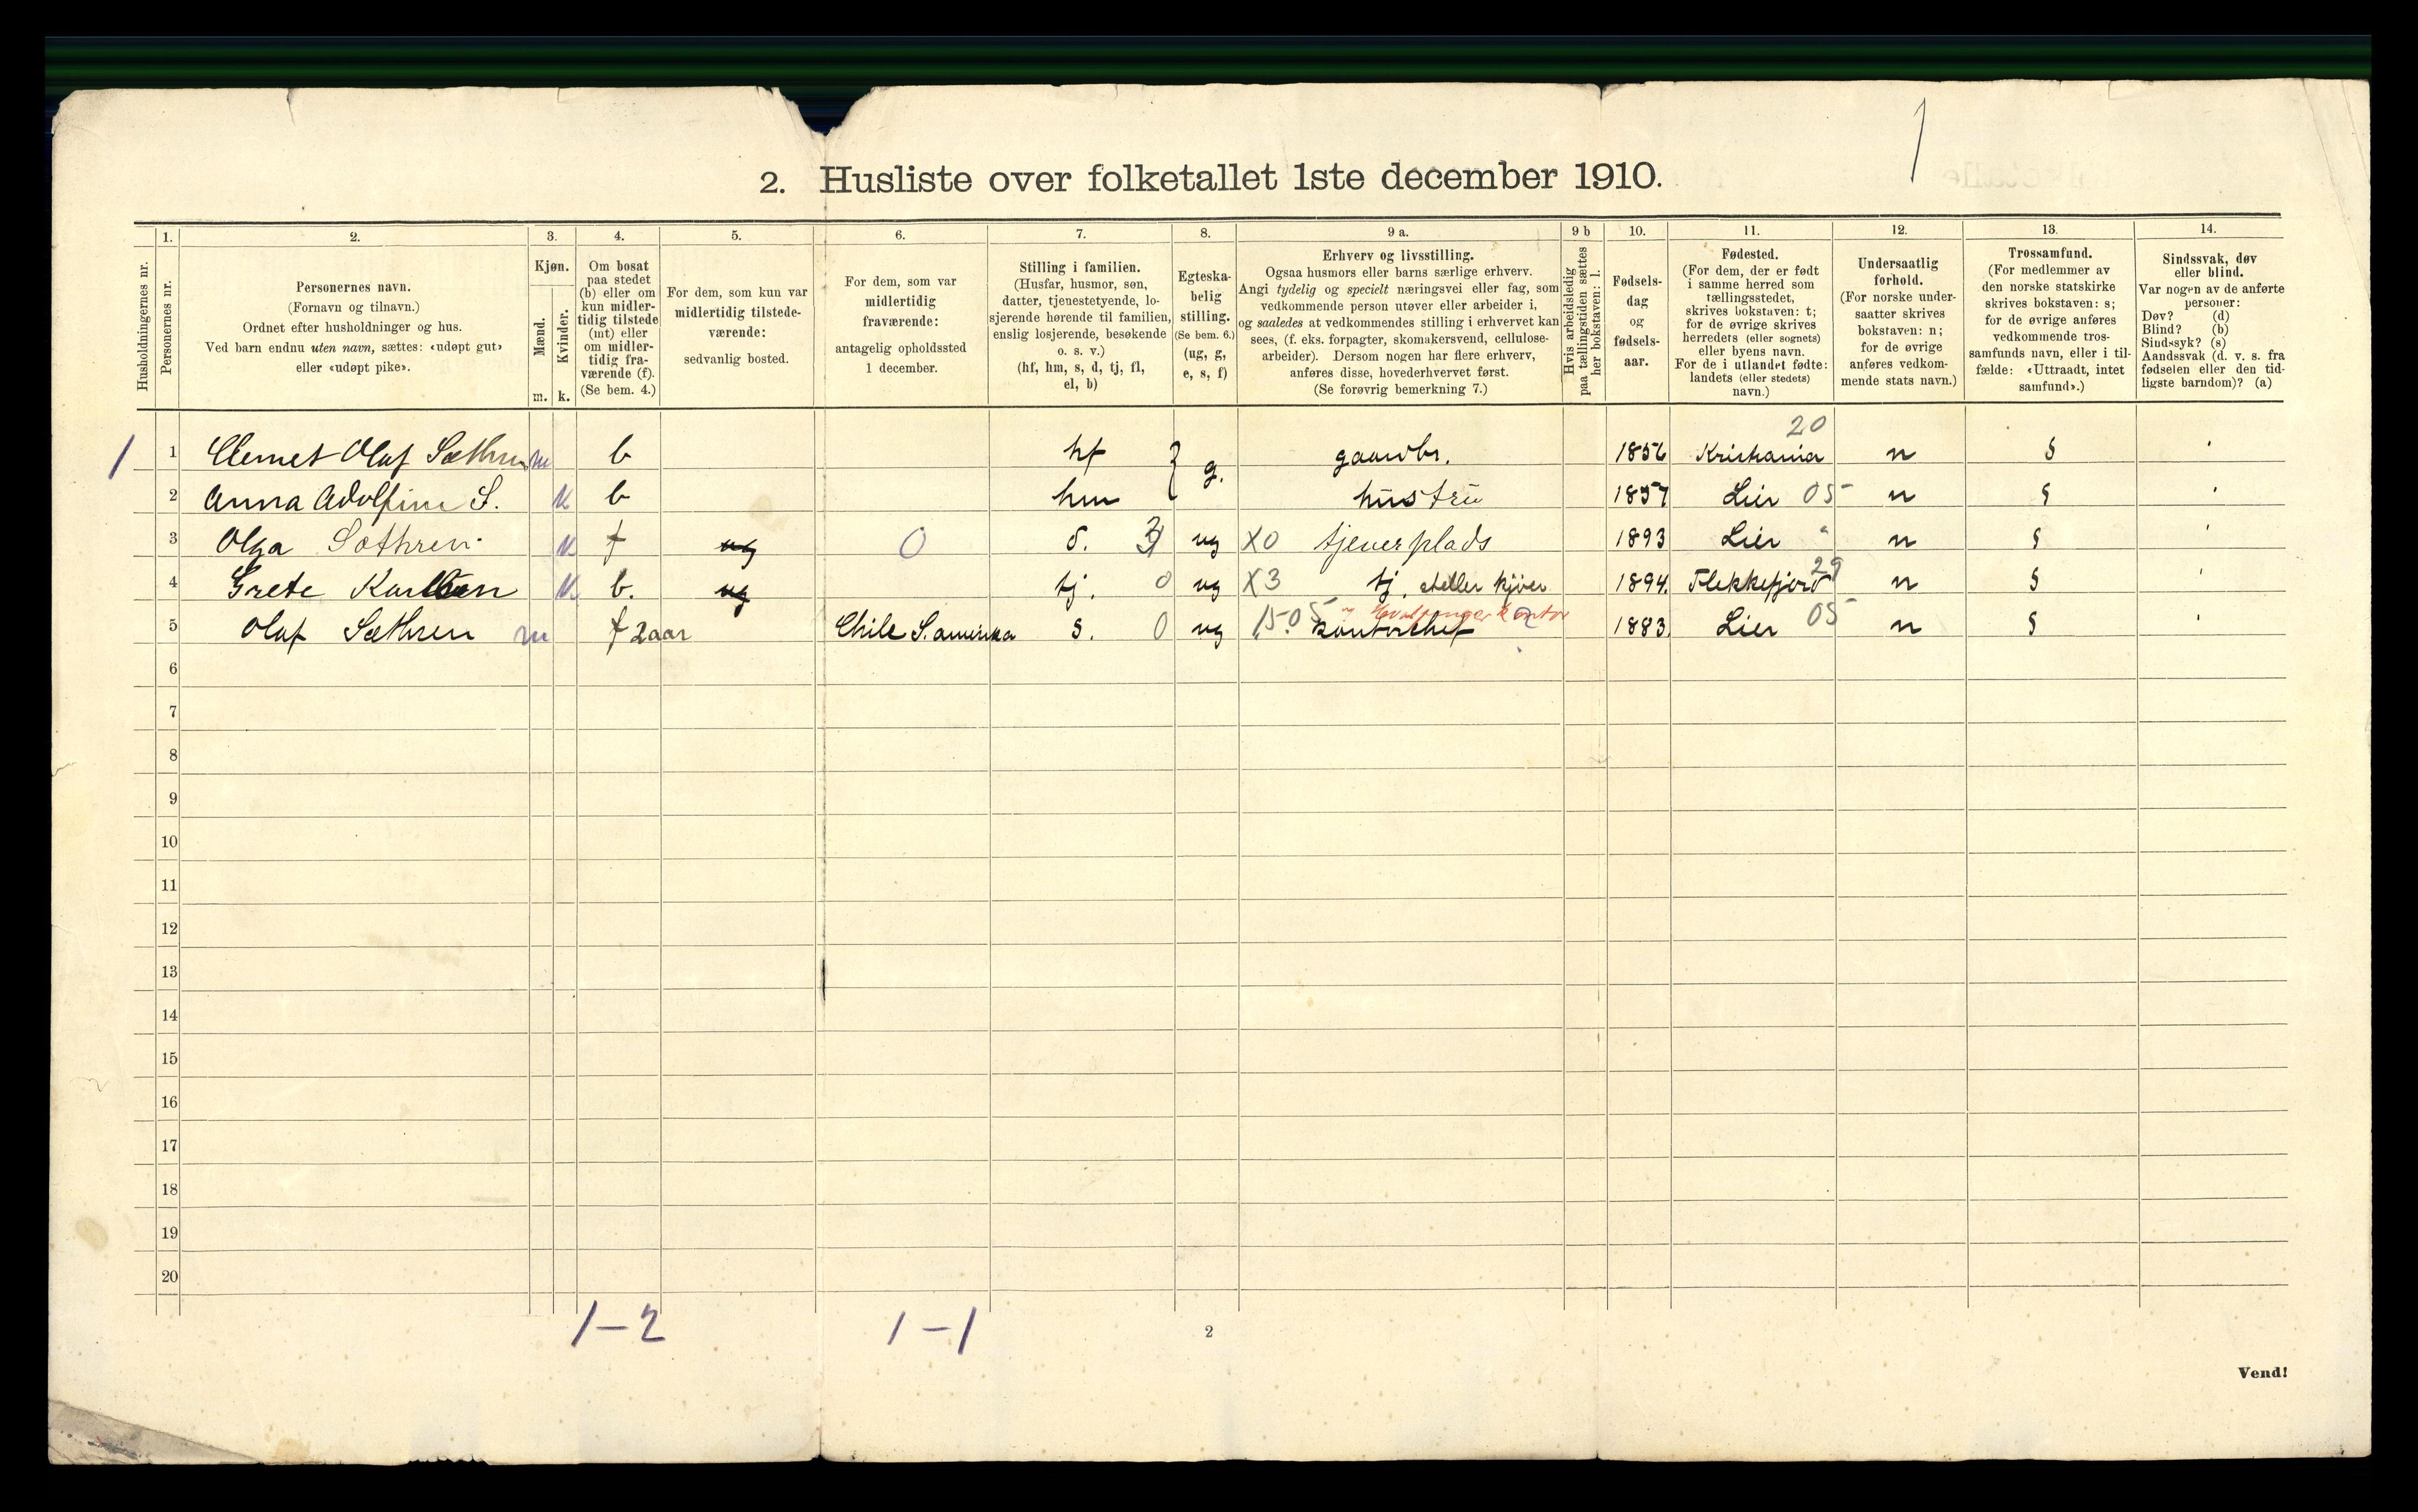 1
2. Husliste over folketallet 1ste december 1910.
1. 2. 3. 4. 5. 6. 7. 8. 9 a. 9 b 10. 11. 12. 13. 14.
Husholdningernes nr.
Personernes nr.
Personernes navn.
(Fornavn og tilnavn.)
Ordnet efter husholdninger og hus.
Ved barn endnu uten navn, sættes: «udøpt gut»
eller «udøpt pike».
Kjøn.
Mænd.
Kvinder.
m. k.
Om bosat
paa stedet
(b) eller om
kun midler-
tidig tilstede
(mt) eller
om midler-
tidig fra-
værende (f).
(Se bem. 4.)
For dem, som kun var
midlertidig tilstede-
værende:
sedvanlig bosted.
For dem, som var
midlertidig
fraværende:
antagelig opholdssted
1 december.
Stilling i familien.
(Husfar, husmor, søn,
datter, tjenestetyende, lo-
sjerende hørende til familien,
enslig losjerende, besøkende
o. s. v.)
(hf, hm, s, d, tj, fl,
el, b)
Egteska-
belig
stilling.
(Se bem. 6.)
(ug, g,
e, s, f)
Erhverv og livsstilling.
Ogsaa husmors eller barns særlige erhverv.
Angi tydelig og specielt næringsvei eller fag, som
vedkommende person utøver eller arbeider i,
og saaledes at vedkommendes stilling i erhvervet kan
sees, (f. eks. forpagter, skomakersvend, cellulose-
arbeider). Dersom nogen har flere erhverv,
anføres disse, hovederhvervet først.
(Se forøvrig bemerkning 7.)
Hvis arbeidsledig
paa tællingstiden sættes
her bokstaven: l.
Fødsels-
dag
og
fødsels-
aar.
Fødested.
(For dem, der er født
i samme herred som
tællingsstedet,
skrives bokstaven: t;
for de øvrige skrives
herredets (eller sognets)
eller byens navn.
For de i utlandet fødte:
landets (eller stedets)
navn.)
Undersaatlig
forhold.
(For norske under-
saatter skrives
bokstaven: n;
for de øvrige
anføres vedkom-
mende stats navn.)
Trossamfund.
(For medlemmer av
den norske statskirke
skrives bokstaven: s;
for de øvrige anføres
vedkommende tros-
samfunds navn, eller i til-
fælde: «Uttraadt, intet
samfund».)
Sindssvak, døv
eller blind.
Var nogen av de anførte
personer:
Døv? (d)
Blind? (b)
Sindssyk? (s)
Aandssvak (d. v. s. fra
fødselen eller den tid-
ligste barndom)? (a)
20
1 1 Clemet Olaf Sæthren m b hf } g. gaardbr. 1856 Kristiania n s
2 Anna Adolfine S. k b hm hustru 1857 Lier 05 n s
3 Olga Sæthren k f ug 0 d. 3 ug X0 tjenerplads 1893 Lier " n s
4 Grete k b. ug tj. 0 ug X3 tj. steller kjøer 1894. Flekkefjord 29 n s
5 Olaf Sæthren m f 2 aar Chile S. amerika s. 0 ug 15.05 kontorchef 1883. Lier 05 n s
6
7
8
9
10
11
12
13
14
15
16
17
18
19
20
1-2 1-1
2
Vend!